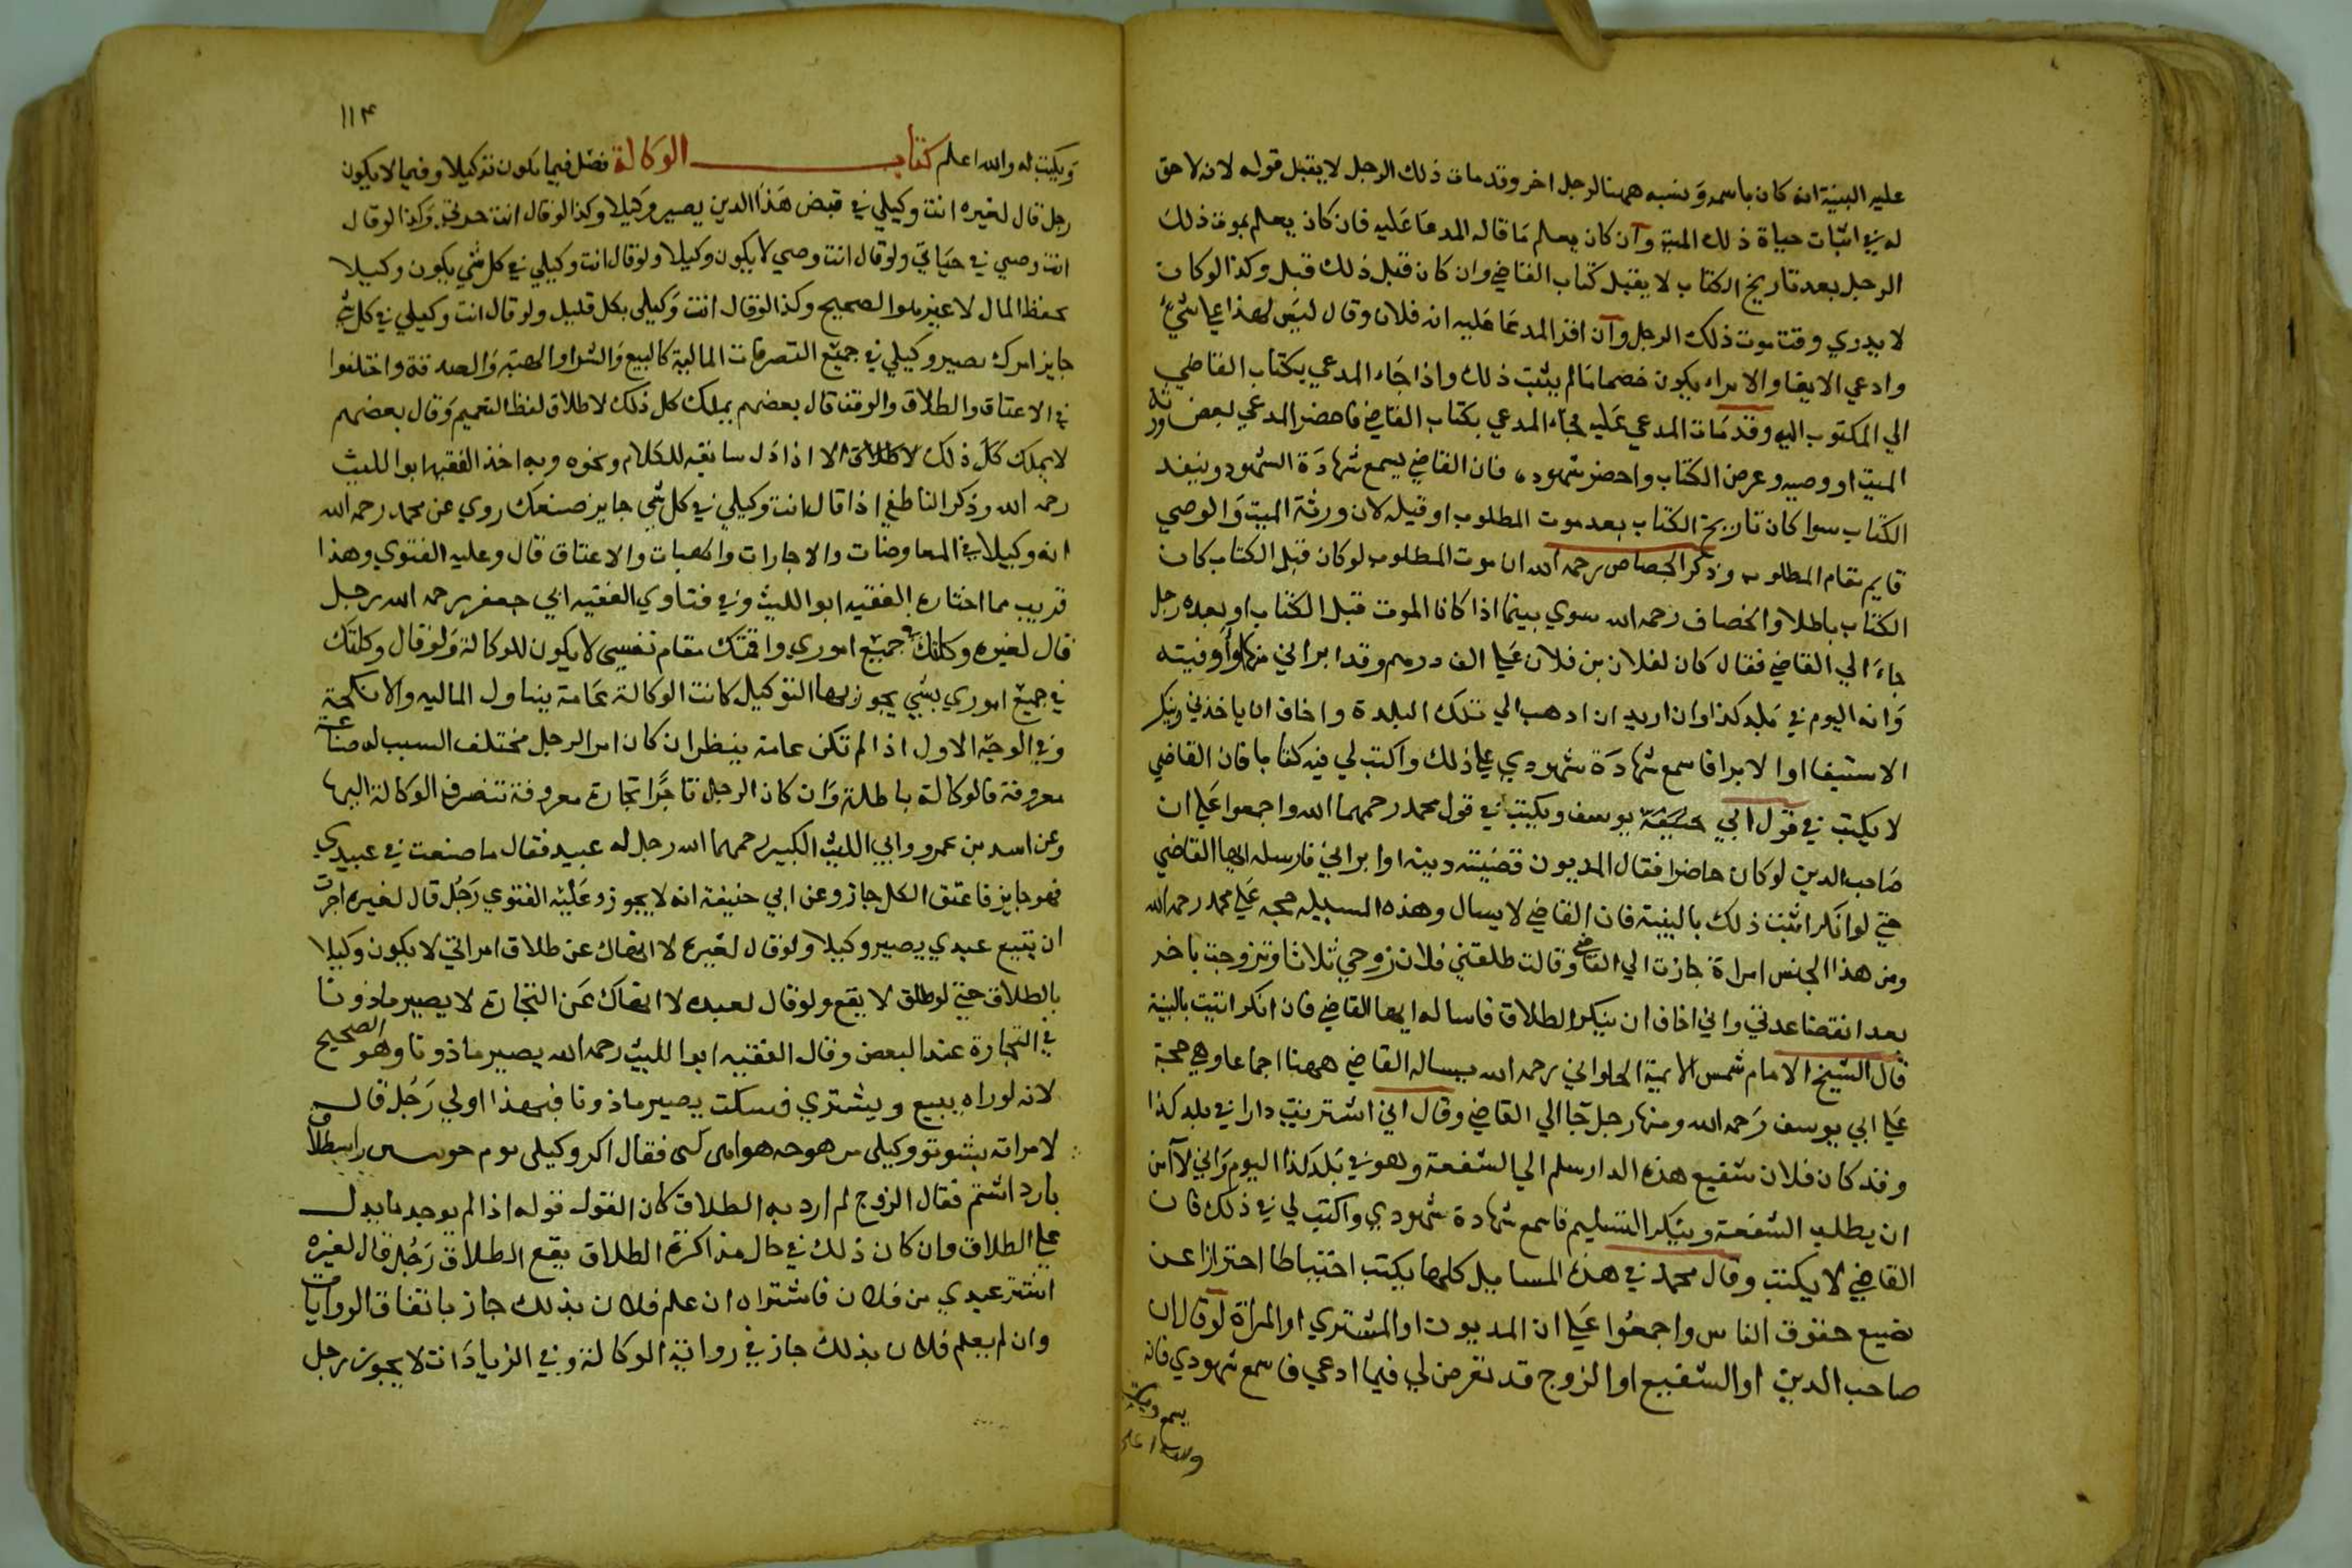 عليه البينة انه كان باسمه ونسبه ههنا لرجل اخر وقد مات ذلك الرجل لا يقبل قوله لانه لا حق
له في اثبات حياة ذلك الميت وان كان يعلم ما قاله المدعا عليه فان كان يعلم بموت ذلك
الرجل بعد تاريخ الكتاب لا يقبل كتاب القاضي وان كان قبل ذلك قبل وكذا لو كان
لا يدري وقت موت ذلك الرجل وان اقر المدعا عليه انه فلان وقال ليس لهذا علي شيء
وادعي الايفا والابراء يكون خصما ما لم يثبت ذلك واذا جاء المدعي بكتاب القاضي
الي المكتوب اليه وقد مات المدعي عليه فجاء المدعي بكتاب القاضي فاحضر المدعي بعض ورثة
الميت او وصيه وعرض الكتاب واحضر شهوده فان القاضي يسمع شهادة الشهود وينفذ
الكتاب سوا كان تاريخ الكتاب بعد موت المطلوب او قبله لان ورثة الميت والوصي
قايم مقام المطلوب وذكر الجصاص رحمه الله ان موت المطلوب لو كان قبل الكتاب كان
الكتاب باطلا والخصاف رحمه الله سوي بينما اذا كانا الموت قبل الكتاب او بعده رجل
جاء الي القاضي فقال كان لفلان بن فلان علي الف درهم وقد ابراني منها او اوفيته
وانه اليوم في بلد كذا وان اريد ان اذهب الي تلك البلدة واخاف ان ياخذني وينكر
الاستيفا او الابرا فاسمع شهادة شهودي علي ذلك واكتب لي فيه كتابا فان القاضي
لا يكتب في قول ابي يوسف ويكتب في قول محمد رحمهما الله واجمعوا علي ان
صاحب الدين لو كان حاضرا فقال المديون قضيته دينه او ابراني فارسله ايها القاضي
حتي لو انكر اثبت ذلك بالبينة فان القاضي لا يسال وهذه المسيلة حجة علي محمد رحمه الله
ومن هذا الجنس امراة جازت الي القاضي وقالت طلقني فلان زوجي ثلاثا وتزوجت باخر
بعد انقضا عدتي واني اخاف ان ينكر الطلاق فاساله ايها القاضي فان انكر اثبت بالبينة
قال الشيخ الامام شمس الايمة الحلواني رحمه الله يساله القاضي ههنا اجماعا وهي حجة
علي ابي يوسف رحمه الله ومنها رجل جا الي القاضي وقال اني اشتريت دارا في بلد كذا
وقد كان فلان شفيع هذه الدار سلم الي الشفعة وهو في بلد كذا اليوم واني لا امن
ان يطلب الشفعة وينكر التسليم فاسمع شهادة شهودي واكتب لي في ذلك فان
القاضي لا يكتب وقال محمد في هذه المسايل كلها يكتب احتياطا احترازا عن
تضيع حقوق الناس واجمعوا علي ان المديون او المشتري او المراة لو قال ان
صاحب الدين او الشفيع او الزوج قد تعرض لي فيما ادعي فاسمع شهودي فانه
يسمع ويكتب
والله اعلم
١١٤
ويكتب له والله اعلم كتاب الوكالة فصل فيما يكون توكيلا وفيما لا يكون
رجل قال لغيره انت وكيلي في قبض هذا الدين يصير وكيلا وكذا لو قال انت وكذا لو قال
انت وصي في حياتي ولو قال انت وصي لا يكون وكيلا ولو قال انت وكيلي في كل شي يكون وكيلا
بحفظ المال لا غير هو الصحيح وكذا لو قال انت وكيلي بكل قليل ولو قال انت وكيلي في كل شي
جايز امرك يصير وكيلي في جميع التصرفات المالية كالبيع والشراء والهبة والصدقة واختلفوا
في الاعتاق والطلاق والوقف قال بعضهم يملك كل ذلك لاطلاق لفظ التعميم وقال بعضهم
لا يملك كل ذلك الا اذا دل سابقه للكلام ونحوه وبه اخذ الفقيه ابو الليث
رحمه الله وذكر الناطفي اذا قال انت وكيلي في كل شي جايز صنعك روي عن محمد رحمه الله
انه وكيلا في المعاوضات والاجارات والهبات والاعتاق قال وعليه الفتوي وهذا
قريب مما اختاره الفقيه ابو الليث وفي فتاوي الفقيه ابي جعفر رحمه الله رجل
قال لغيره وكلتك في جميع اموري واقمتك مقام نفسي لا يكون للوكالة ولو قال وكلتك
في جميع اموري بشي يجوز بها التوكيل كانت الوكالة عامة يتناول الماليه والانكحة
وفي الوجه الاول اذا لم تكن عامة ينظر ان كان امر الرجل مختلف السبب له صناعة
معروفة فالوكالة باطلة وان كان الرجل تاجرا تجارة معروفة تنصرف الوكالة اليها
وعن اسد بن عمرو وابي الليث الكبير رحمهما الله رجل له عبيد فقال ما صنعت في عبيدي
فهو جايز فاعتق الكل جاز وعن ابي حنيفة انه لا يجوز وعليه الفتوي رجل قال لغيره اجرت
ان تبيع عبدي يصير وكيلا ولو قال لغيره لا انهاك عن طلاق امراتي لا يكون وكيلا
بالطلاق حتي لو طلق لا يقع ولو قال لعبده لا انهاك عن التجارة لا يصير ماذونا
في التجارة عند البعض وقال الفقيه ابو الليث رحمه الله يصير ماذونا وهو الصحيح
لانه لو راه يبيع ويشتري فسكت يصير ماذونا فبهذا اولي رجل قال
لامراته فقال اكر وكيلي
بازداشتم فقال الزوج لم ارد به الطلاق كان القول قوله اذا لم يوجد ما يدل
علي الطلاق وان كان ذلك في حال مذاكرة الطلاق يقع الطلاق رجل قال لغيره
اشتر عبدي من فلان فاشتراه ان علم فلان بذلك جاز باتفاق الروايات
وان لم يعلم فلان بذلك جاز في رواية الوكالة وفي الزيادات لا يجوز رجل